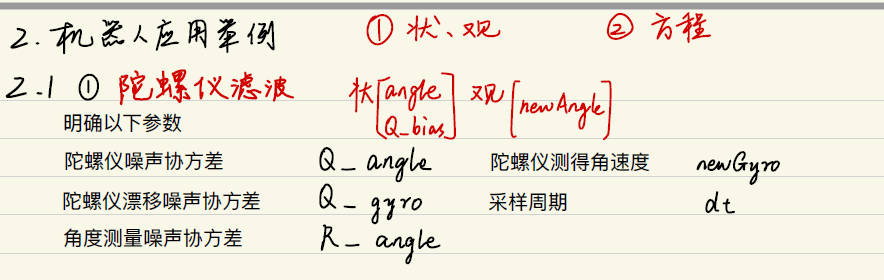 2. 机器人应用举例 ① 状、观 ② 方程
2.1 ① 陀螺仪滤波 状[angle Q_bias] 观[newAngle]
明确以下参数
陀螺仪噪声协方差 Q_angle 陀螺仪测得角速度 newGyro
陀螺仪漂移噪声协方差 Q_gyro 采样周期 dt
角度测量噪声协方差 R_angle